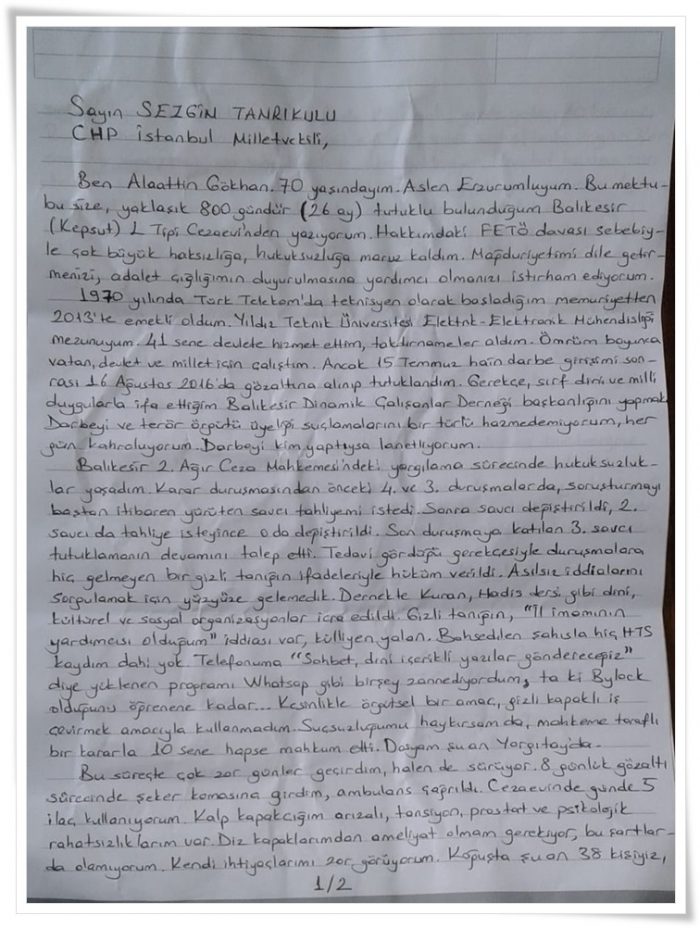 Sayın SEZGİN TANRIKULU
CHP İstanbul Milletvekili,
Ben Alaattin Gökhan. 70 yaşındayım. Aslen Erzurumluyum. Bu mektu-
bu size, yaklaşık 800 gündür (26 ay) tutuklu bulunduğum Balıkesir
(Kepsut) L Tipi Cezaevi'nden yazıyorum. Hakkımdaki FETÖ davası sebebiy-
le çok büyük haksızlığa, hukuksuzluğa maruz kaldım. Mağduriyetimi dile getir-
menizi, adalet çığlığımın duyurulmasına yardımcı olmanızı istirham ediyorum.
1970 yılında Türk Telekom'da teknisyen olarak başladığım memuriyetten
2013'te emekli oldum. Yıldız Teknik Üniversitesi Elektrik-Elektronik Mühendisliği
mezunuyum. 41 sene devlete hizmet ettim, takdirnameler aldım. Ömrüm boyunca
vatan, devlet ve millet için çalıştım. Ancak 15 Temmuz hain darbe girişimi son-
rası 16 Ağustos 2016'da gözaltına alınıp tutuklandım. Gerekçe, sırf dini ve milli
duygularla ifa ettiğim Balıkesir Dinamik Çalışanlar Derneği başkanlığını yapmak
Darbeyi ve terör örgütü üyeliği suçlamalarını bir türlü hazmedemiyorum, her
gün kahroluyorum. Darbeyi kim yaptıysa lanetliyorum.
Balıkesir 2. Ağır Ceza Mahkemesi'ndeki yargılama sürecinde hukuksuzluk-
lar yaşadım. Karar duruşmasından önceki 4. ve 3. duruşmalarda, soruşturmayı
baştan itibaren yürüten savcı tahliyemi istedi. Sonra savcı değiştirildi, 2.
savcı da tahliye isteyince o da değiştirildi. Son duruşmaya katılan 3. savcı
tutuklamanın devamını talep etti. Tedavi gördüğü gerekçesiyle duruşmalara
hiç gelmeyen bir gizli tanığın ifadeleriyle hüküm verildi. Asılsız iddialarını
sorgulamak için yüzyüze gelemedik. Dernekte Kuran, Hadis dersi gibi dini,
kültürel ve sosyal organizasyonlar icra edildi. Gizli tanığın, "İl imamının
yardımcısı olduğum" iddiası var, külliyen yalan. Bahsedilen şahısla hiç HTS
kaydım dahi yok. Telefonuma "Sohbet, dini içerikli yazılar göndereceğiz"
diye yüklenen programı Whatsap gibi birşey zannediyordum, ta ki Bylock
olduğunu öğrenene kadar... Kesinlikle örgütsel bir amaç, gizli kapaklı iş
çevirmek amacıyla kullanmadım. Suçsuzluğumu haykırsam da, mahkeme taraflı
bir kararla 10 sene hapse mahkum etti. Dosyam şuan Yargıtay'da.
Bu süreçte çok zor günler geçirdim, halen de sürüyor. 8 günlük gözaltı
sürecinde şeker komasına girdim, ambulans çağrıldı. Cezaevinde günde 5
ilaç kullanıyorum. Kalp kapakcığım arızalı, tansiyon, prostat ve psikolojik
rahatsızlıklarım var. Diz kapaklarımdan ameliyat olmam gerekiyor, bu şartlar-
da olamıyorum. Kendi ihtiyaçlarımı zor görüyorum. Koğuşta şuan 38 kişiyiz,
1/2